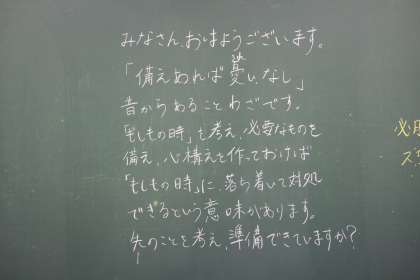 みなさん、おはようございます。
「備えあれば憂いなし」
昔からあることわざです。
「もしもの時」を考え、必要なものを
備え、心構えを作っておけば
「もしもの時」に、落ち着いて対処
できるという意味があります。
先のことを考え、準備できていますか?